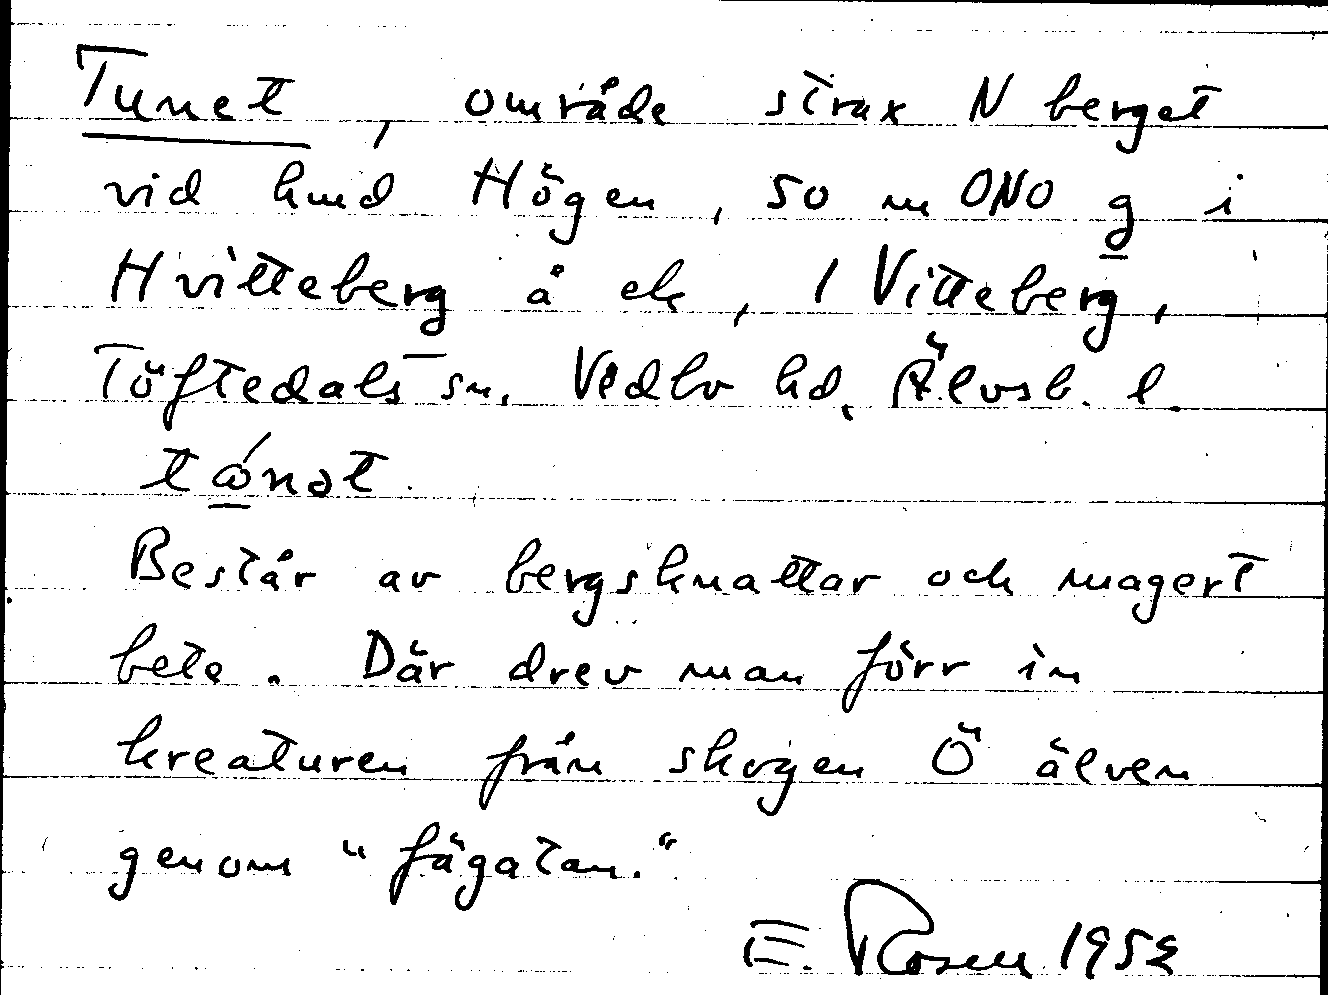 Tunet, område strax N berget
vid hmd Högen, 50 m ONO g i
Hvitteberg å ek, 1 Vitteberg,
Töftedals sn. Vedbo hd, Älvsb. l.
Består av bergsknattar och magert
bete. Där drev man förr in
kreaturen från skogen Ö älven
genom "fägatan."
E. Rosen